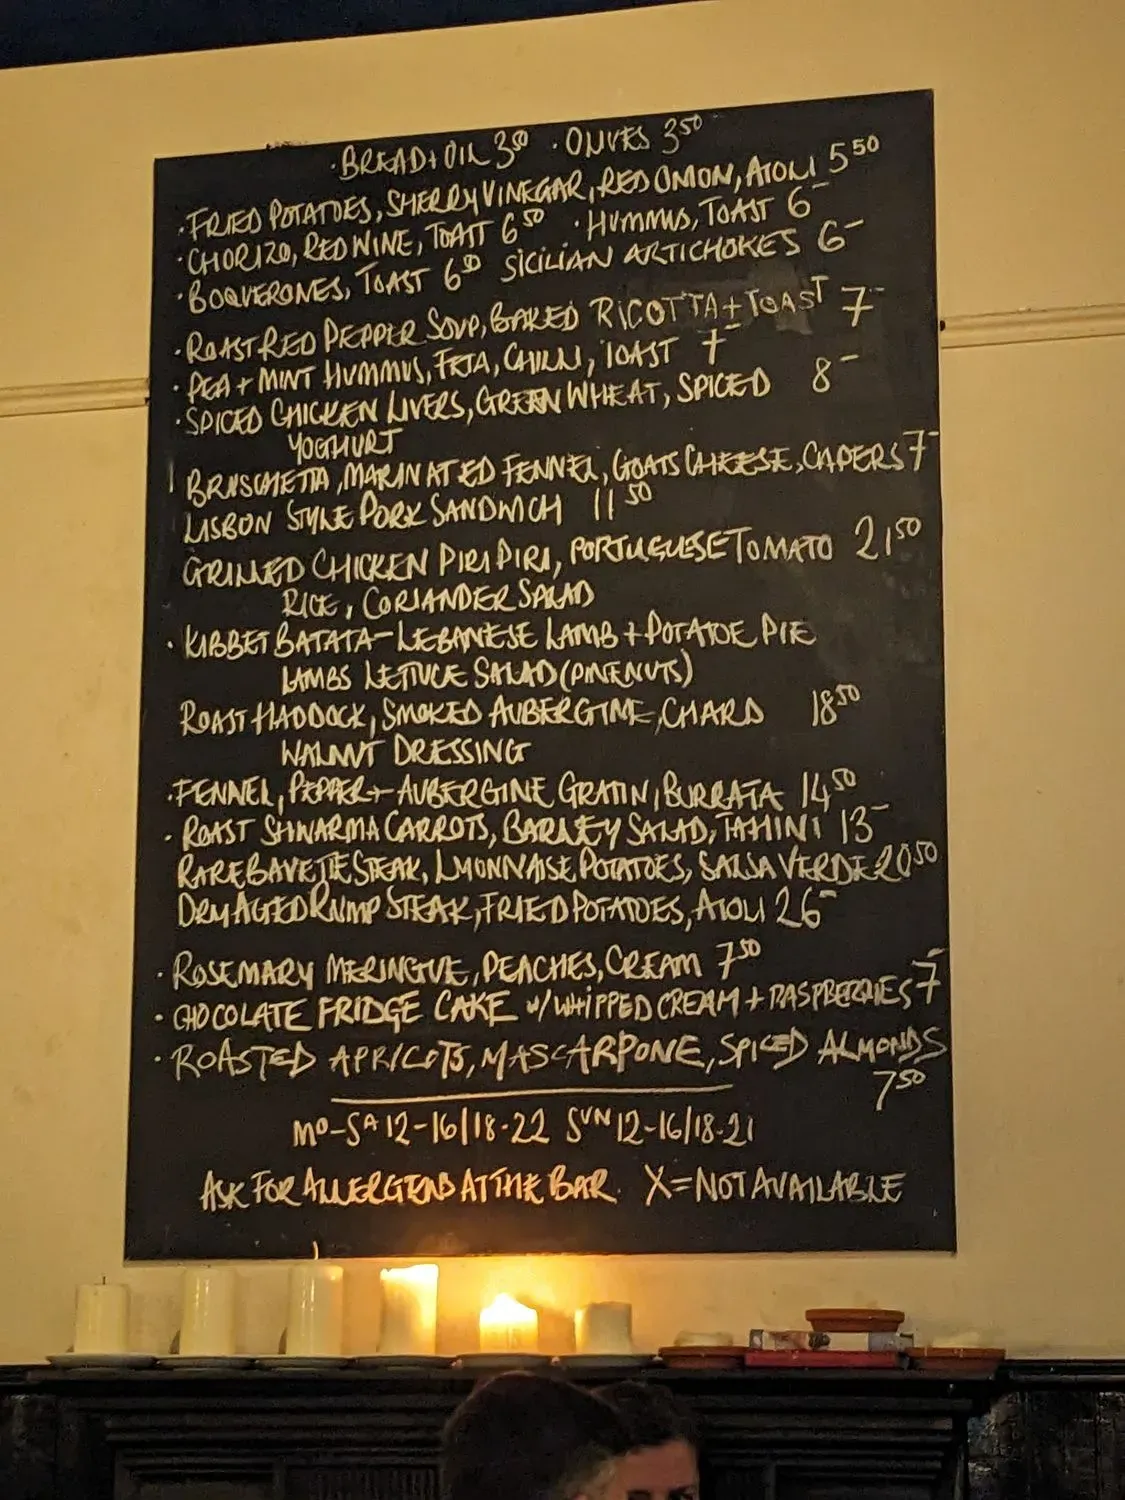 ·BREAD+OIL 3⁵⁰ ·OLIVES 3⁵⁰
·FRIED POTATOES, SHERRY VINEGAR, RED ONION, AIOLI 5⁵⁰
·CHORIZO, RED WINE, TOAST 6⁵⁰ ·HUMMUS, TOAST 6⁻
·BOQUERONES, TOAST 6⁵⁰ SICILIAN ARTICHOKES 6⁻
·ROAST RED PEPPER SOUP, BAKED RICOTTA + TOAST 7⁻
·PEA + MINT HUMMUS, FETA, CHILLI, TOAST 7⁻
·SPICED CHICKEN LIVERS, GREEN WHEAT, SPICED 8⁻
YOGHURT
BRUSCHETTA, MARINATED FENNEL, GOATS CHEESE, CAPERS 7⁻
LISBON STYLE PORK SANDWICH 11⁵⁰
GRILLED CHICKEN PIRI PIRI, PORTUGUESE TOMATO 21⁵⁰
RICE, CORIANDER SALAD
·KIBBET BATATA-LEBANESE LAMB + POTATOE PIE
LAMBS LETTUCE SALAD (PINENUTS)
ROAST HADDOCK, SMOKED AUBERGINE, CHARD 18⁵⁰
WALNUT DRESSING
·FENNEL, PEPPER + AUBERGINE GRATIN, BURRATA 14⁵⁰
·ROAST SHWARMA CARROTS, BARLEY SALAD, TAHINI 13⁻
RARE BAVETTE STEAK, LYONNAISE POTATOES, SALSA VERDE 20⁵⁰
DRY AGED RUMP STEAK, FRIED POTATOES, AIOLI 26⁻
·ROSEMARY MERINGUE, PEACHES, CREAM 7⁵⁰
·CHOCOLATE FRIDGE CAKE w/ WHIPPED CREAM + RASPBERRIES 7⁻
·ROASTED APRICOTS, MASCARPONE, SPICED ALMONDS
7⁵⁰
MO-SA 12-16/18-22 SUN 12-16/18-21
ASK FOR ALLERGENS AT THE BAR. X=NOT AVAILABLE